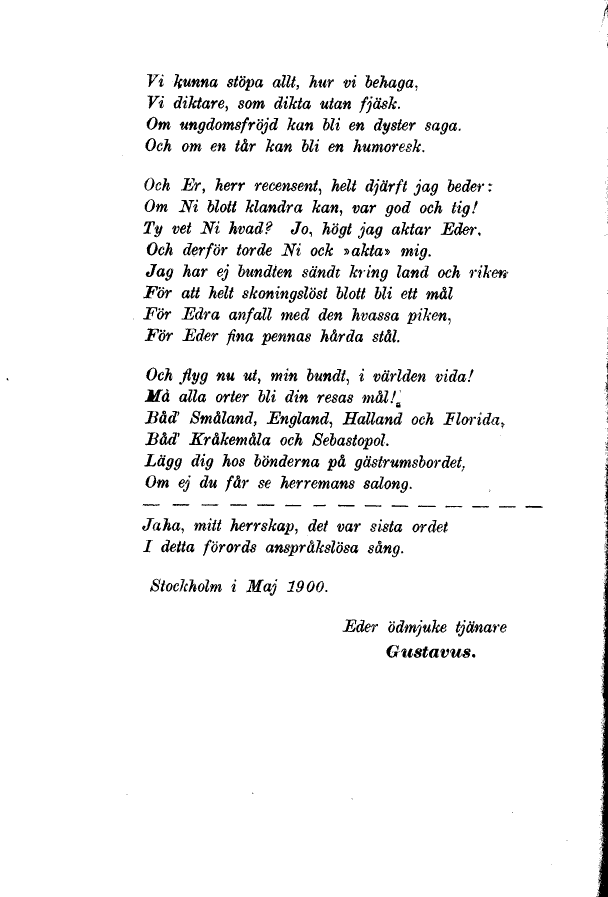 Vi kunna stöpa allt, hur vi behaga,
Vi diktare, som dikta utan fjäsk.
Om ungdomsfröjd kan bli en dyster saga.
Och om en tår kan bli en humoresk.

Och Er, herr recensent, helt djärft jag beder:
Om Ni blott klandra kan, var god och tig!
Ty vet Ni hvad? Jo, högt jag aktar Eder,
Och derför torde Ni ock »akta» mig.
Jag har ej bundten sändt kring land och riken
För att helt skoningslöst blott bli ett mål
För Edra anfall med den hvassa piken,
För Eder fina pennas hårda stål.

Och flyg nu ut, min bundt, i världen vida!
Må alla orter bli din resas mål!
Båd' Småland, England, Halland och Florida,
Båd' Kråkemåla och Sebastopol.
Lägg dig hos bönderna på gästrumsbordet,
Om ej du får se herremans salong.
— — — — — — — — — — — — — — —
Jaha, mitt herrskap, det var sista ordet
I detta förords anspråkslösa sång.

Stockholm i Maj 1900.

Eder ödmjuke tjänare
Gustavus.